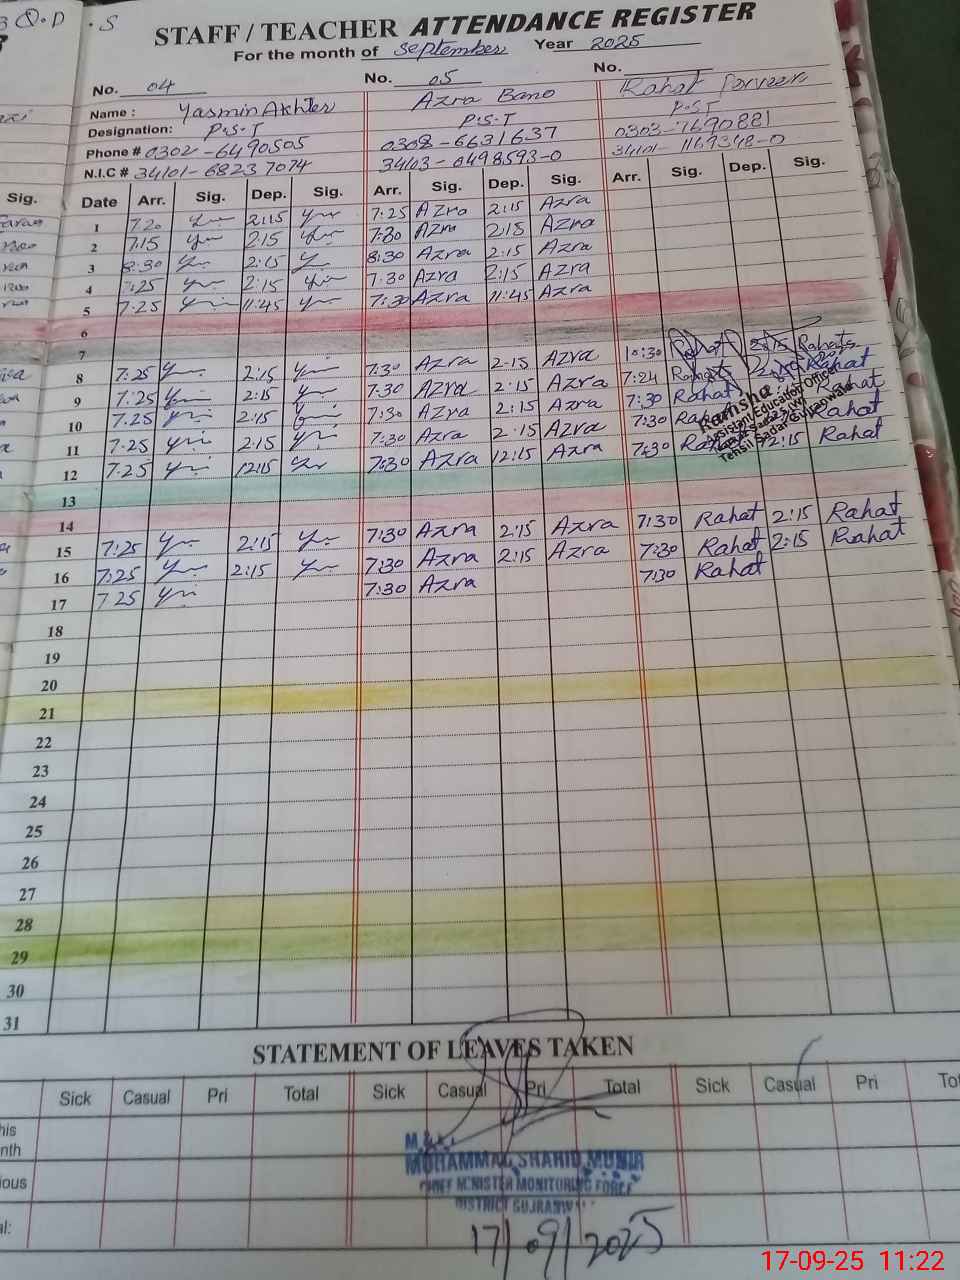 Q.D.S
STAFF / TEACHER ATTENDANCE REGISTER
For the month of September Year 2025
No. 04 No. 05 No.
Name : Yasmin Akhter Azra Bano Rahat Parveen
Designation: P.S.T P.S.T P.S.T
Phone # 0302-6490505 0308-6631637 0303-7690881
N.I.C # 34101-68237074 34103-0498593-0 34101-1169348-0
Sig. Date Arr. Sig. Dep. Sig. Arr. Sig. Dep. Sig. Arr. Sig. Dep. Sig.
1 7.20 2:15 7:25 Azra 2:15 Azra
2 7.15 2:15 7:30 Azra 2:15 Azra
3 8:30 2:15 8:30 Azra 2:15 Azra
4 :25 2:15 7:30 Azra 2:15 Azra
5 7.25 11:45 7:30 Azra 11:45 Azra
6
7
8 7:25 2:15 7:30 Azra 2-15 Azra 10:30 Rahat 2:15 Rahat
9 7:25 2:15 7:30 Azra 2:15 Azra 7:24 Rahat Rahat
10 7.25 2:15 7:30 Azra 2:15 Azra 7:30 Rahat Rahat
11 7.25 2:15 7:30 Azra 2.15 Azra 7:30 Rahat
12 7.25 12:15 7:30 Azra 12:15 Azra 7:30 12:15 Rahat
Assistant Education Officer
Tehsil Sadar Gujranwala
13
14
15 7:25 2:15 7:30 Azra 2:15 Azra 7:30 Rahat 2:15 Rahat
16 7:25 2:15 7:30 Azra 2:15 Azra 7:30 Rahat 2:15 Rahat
17 7 25 7:30 Azra 7:30 Rahat
18
19
20
21
22
23
24
25
26
27
28
29
30
31
STATEMENT OF LEAVES TAKEN
Sick Casual Pri Total Sick Casual Pri Total Sick Casual Pri
MUHAMMAD SHAHID MUNIR
CHIEF MINISTER MONITORING FORCE
DISTRICT GUJRANWALA
17/09/2025
17-09-25 11:22